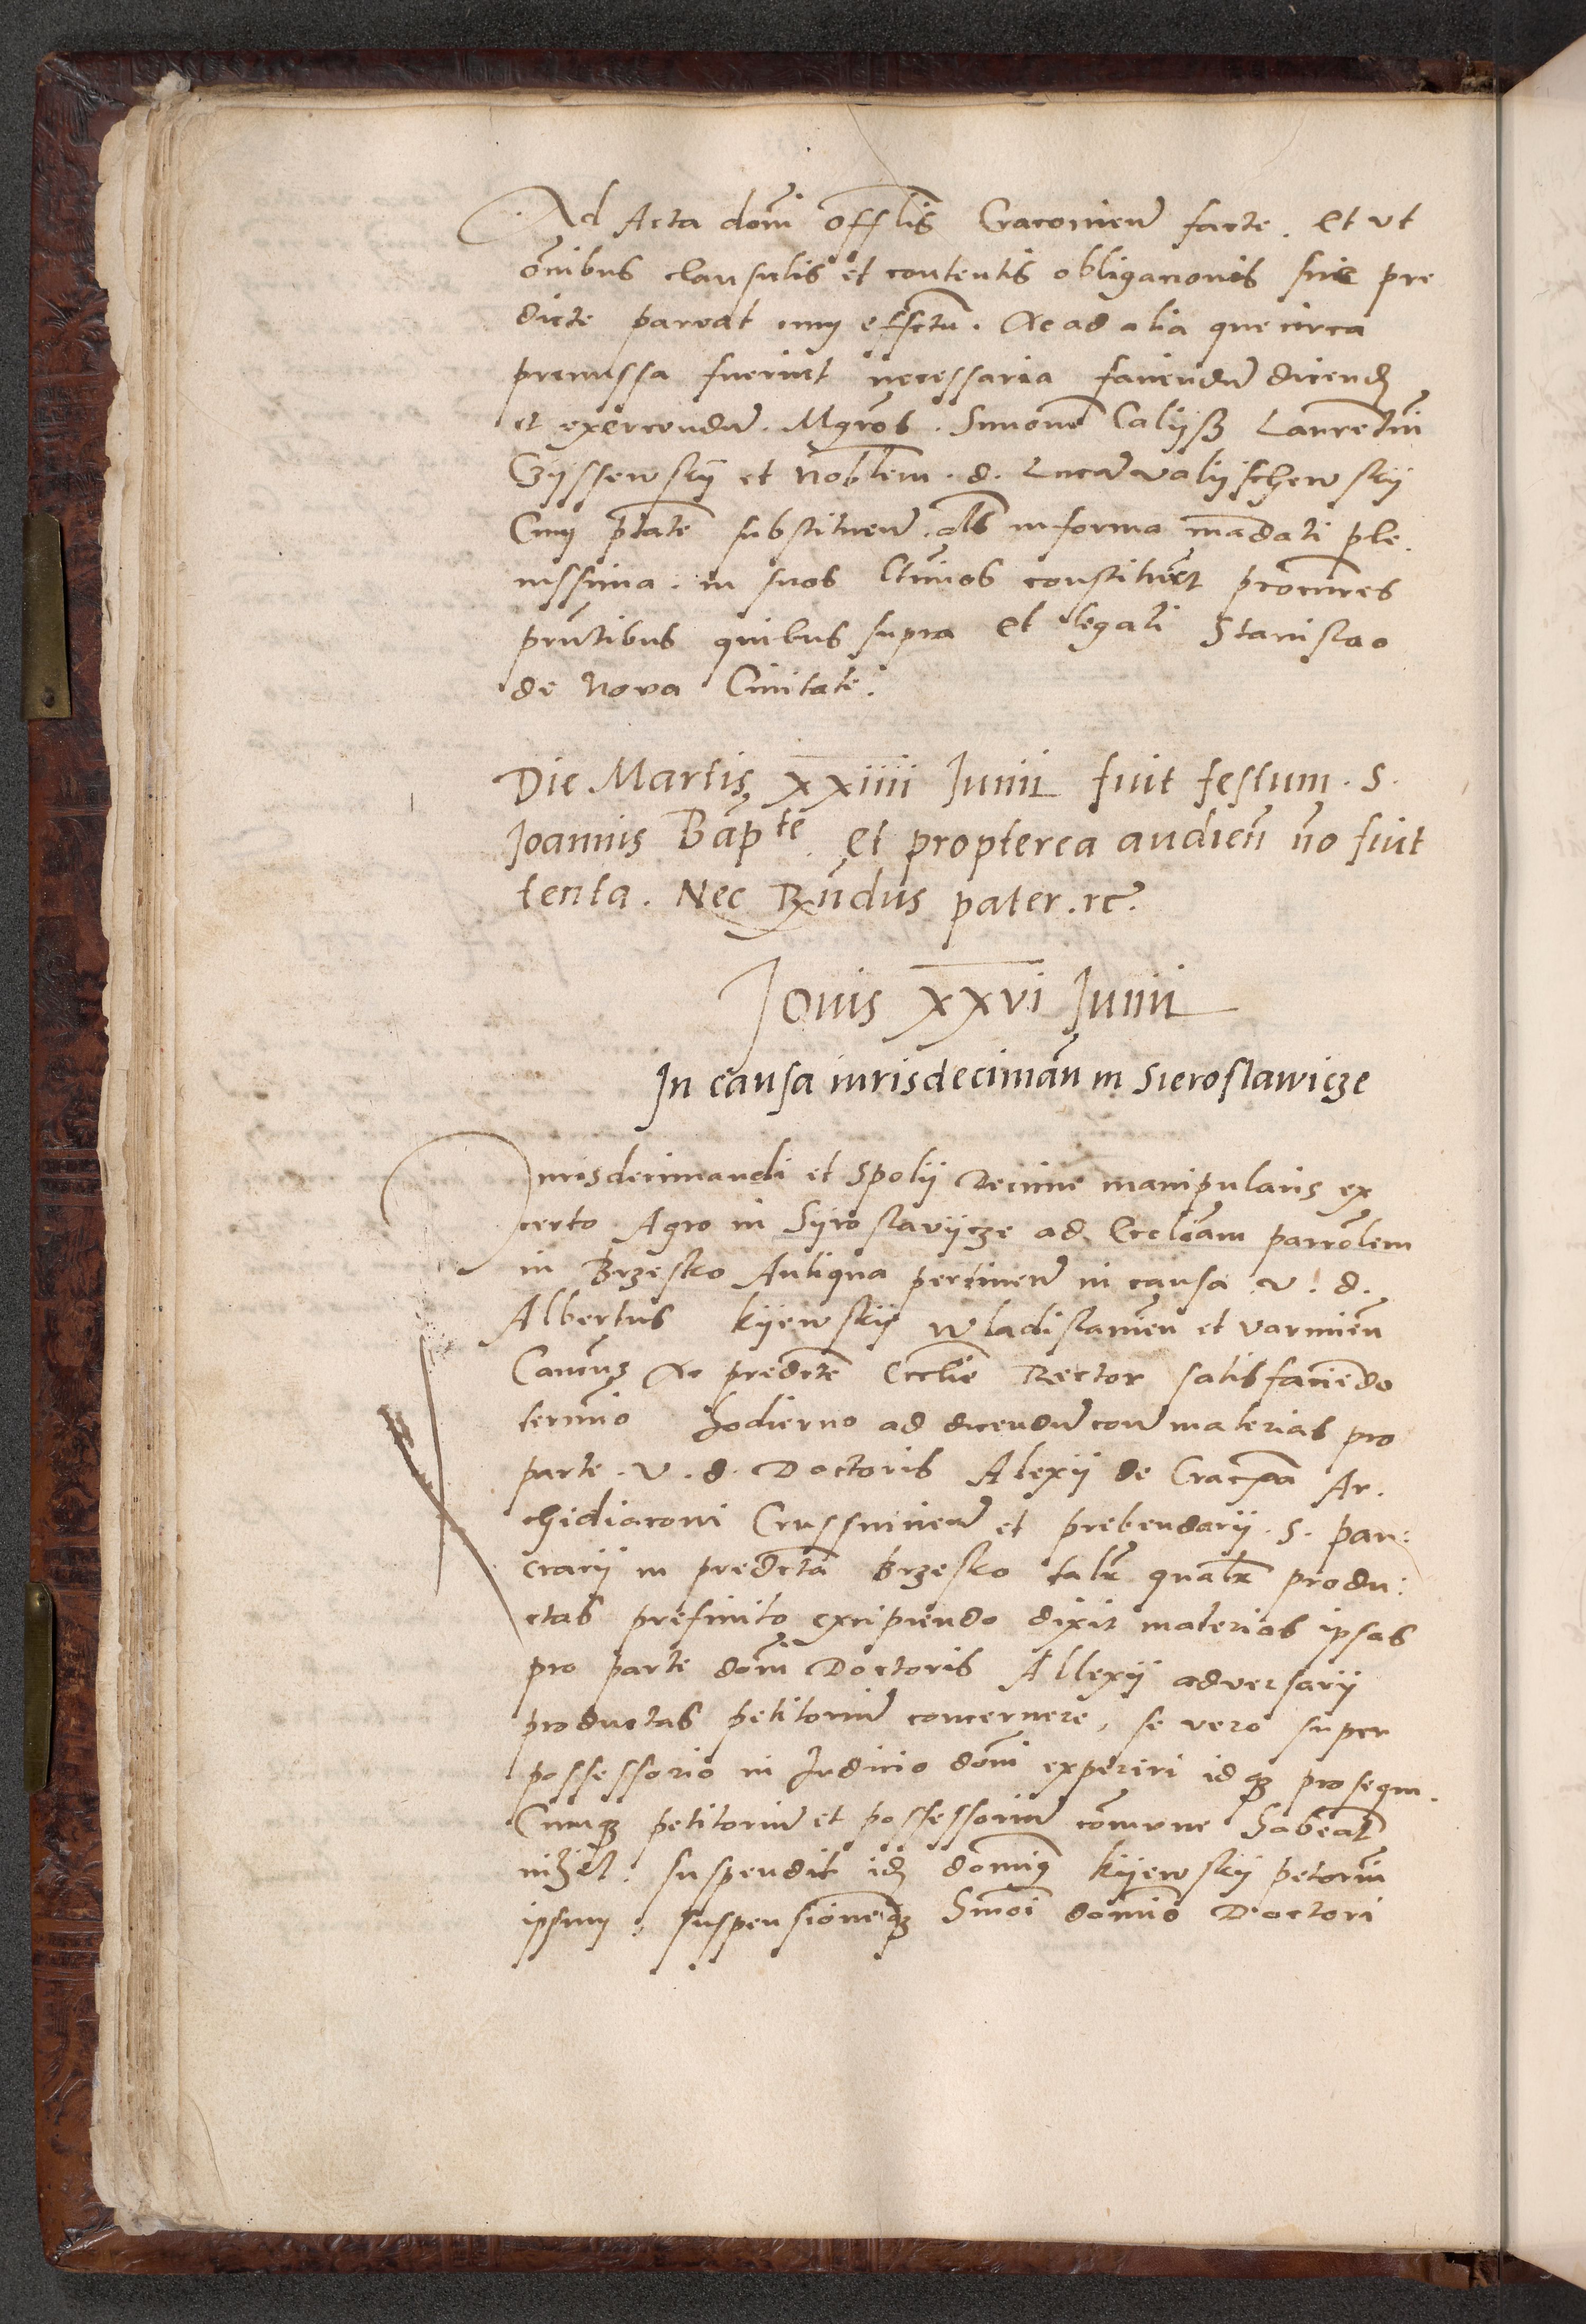 Ad Acta domĩ offlis Cracovien̄ facte. Et ut
om̄ibus clausulis et contentis obligacionis sue pre
dicte pareat cum effectu. Ac ad alia que circa
premissa fuerint necessaria faciendū dicend
et exercendū. Mgros. Simonē Calijsz Laurētiū
Czyssewskij et Nobilem. d. Lucā valijschewskij
Cum ptāte substituen̄. als in forma mādati ple.
nissima. in suos ltimos constituit procures
prn̄tibus quibus supra et legali Stanislao
de Nova Civitate.
Die Martis XXiiii Junii fuit festum. S.
Joannis Bapte. et propterea audien̄ nō fuit
tenta. Nec Rn̄dus pater. rc.
Jovis XXVI Junii
In causa iurisdeciman̄ in Sieroslawicze
Jurisdecimandi et Spolij Decime manipularis ex
certo Agro in Syroslavijcze ad Eccliam parrolem
in Brzesko Antiqua pertinen̄ in causa. V. d.
Albertus Kijewskij Wladislavien̄ et Varmien̄
Canc̄us Ac predcte Ecclie Rector satisfaciēdo
termio hodierno ad dicendū con̄ materias pro
parte. V. d. Doctoris Alexij de Cracovia Ar.
chidiaconi Crussvicien̄ et prebendarij. S. pan:
cracij in predcta Brzesko talr qualr produ:
ctas prefinito excipiendo dixit materias ipsas
pro parte domĩ Doctoris Allexij adversarij
productas petitoriū concernere, se vero super
possessorio in Judicio domĩ experiri idqz prosequi.
Cumqz petitoriū et possessoriū comune habeāt
nihil. suspendit idē domiqz Kijewskij petoriū
ipsum, suspensionemqz Smoi domio Doctori